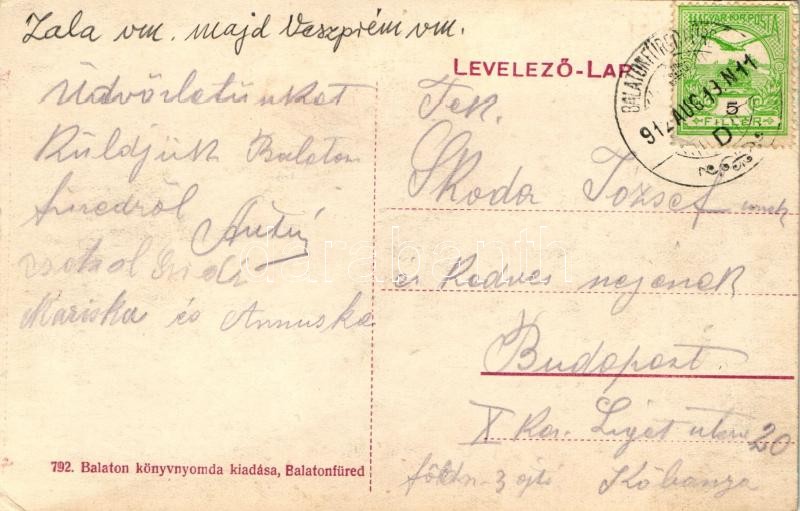 Zala vm. majd Veszprém vm.
LEVELEZŐ-LAP
MAGYAR KIR. POSTA
5
FILLÉR
BALATONFÜRED
912 AUG 13 N 11
D
Üdvözletünket
Küldjük Balaton
füredről
Mariska és Annuska
Tek.
Skoda Jozsef
és Kedves nejenek
Budapest
X Ker. Liget utca 20
földn. 3 ajtó Kőbanya
darabanth
792. Balaton könyvnyomda kiadása, Balatonfüred